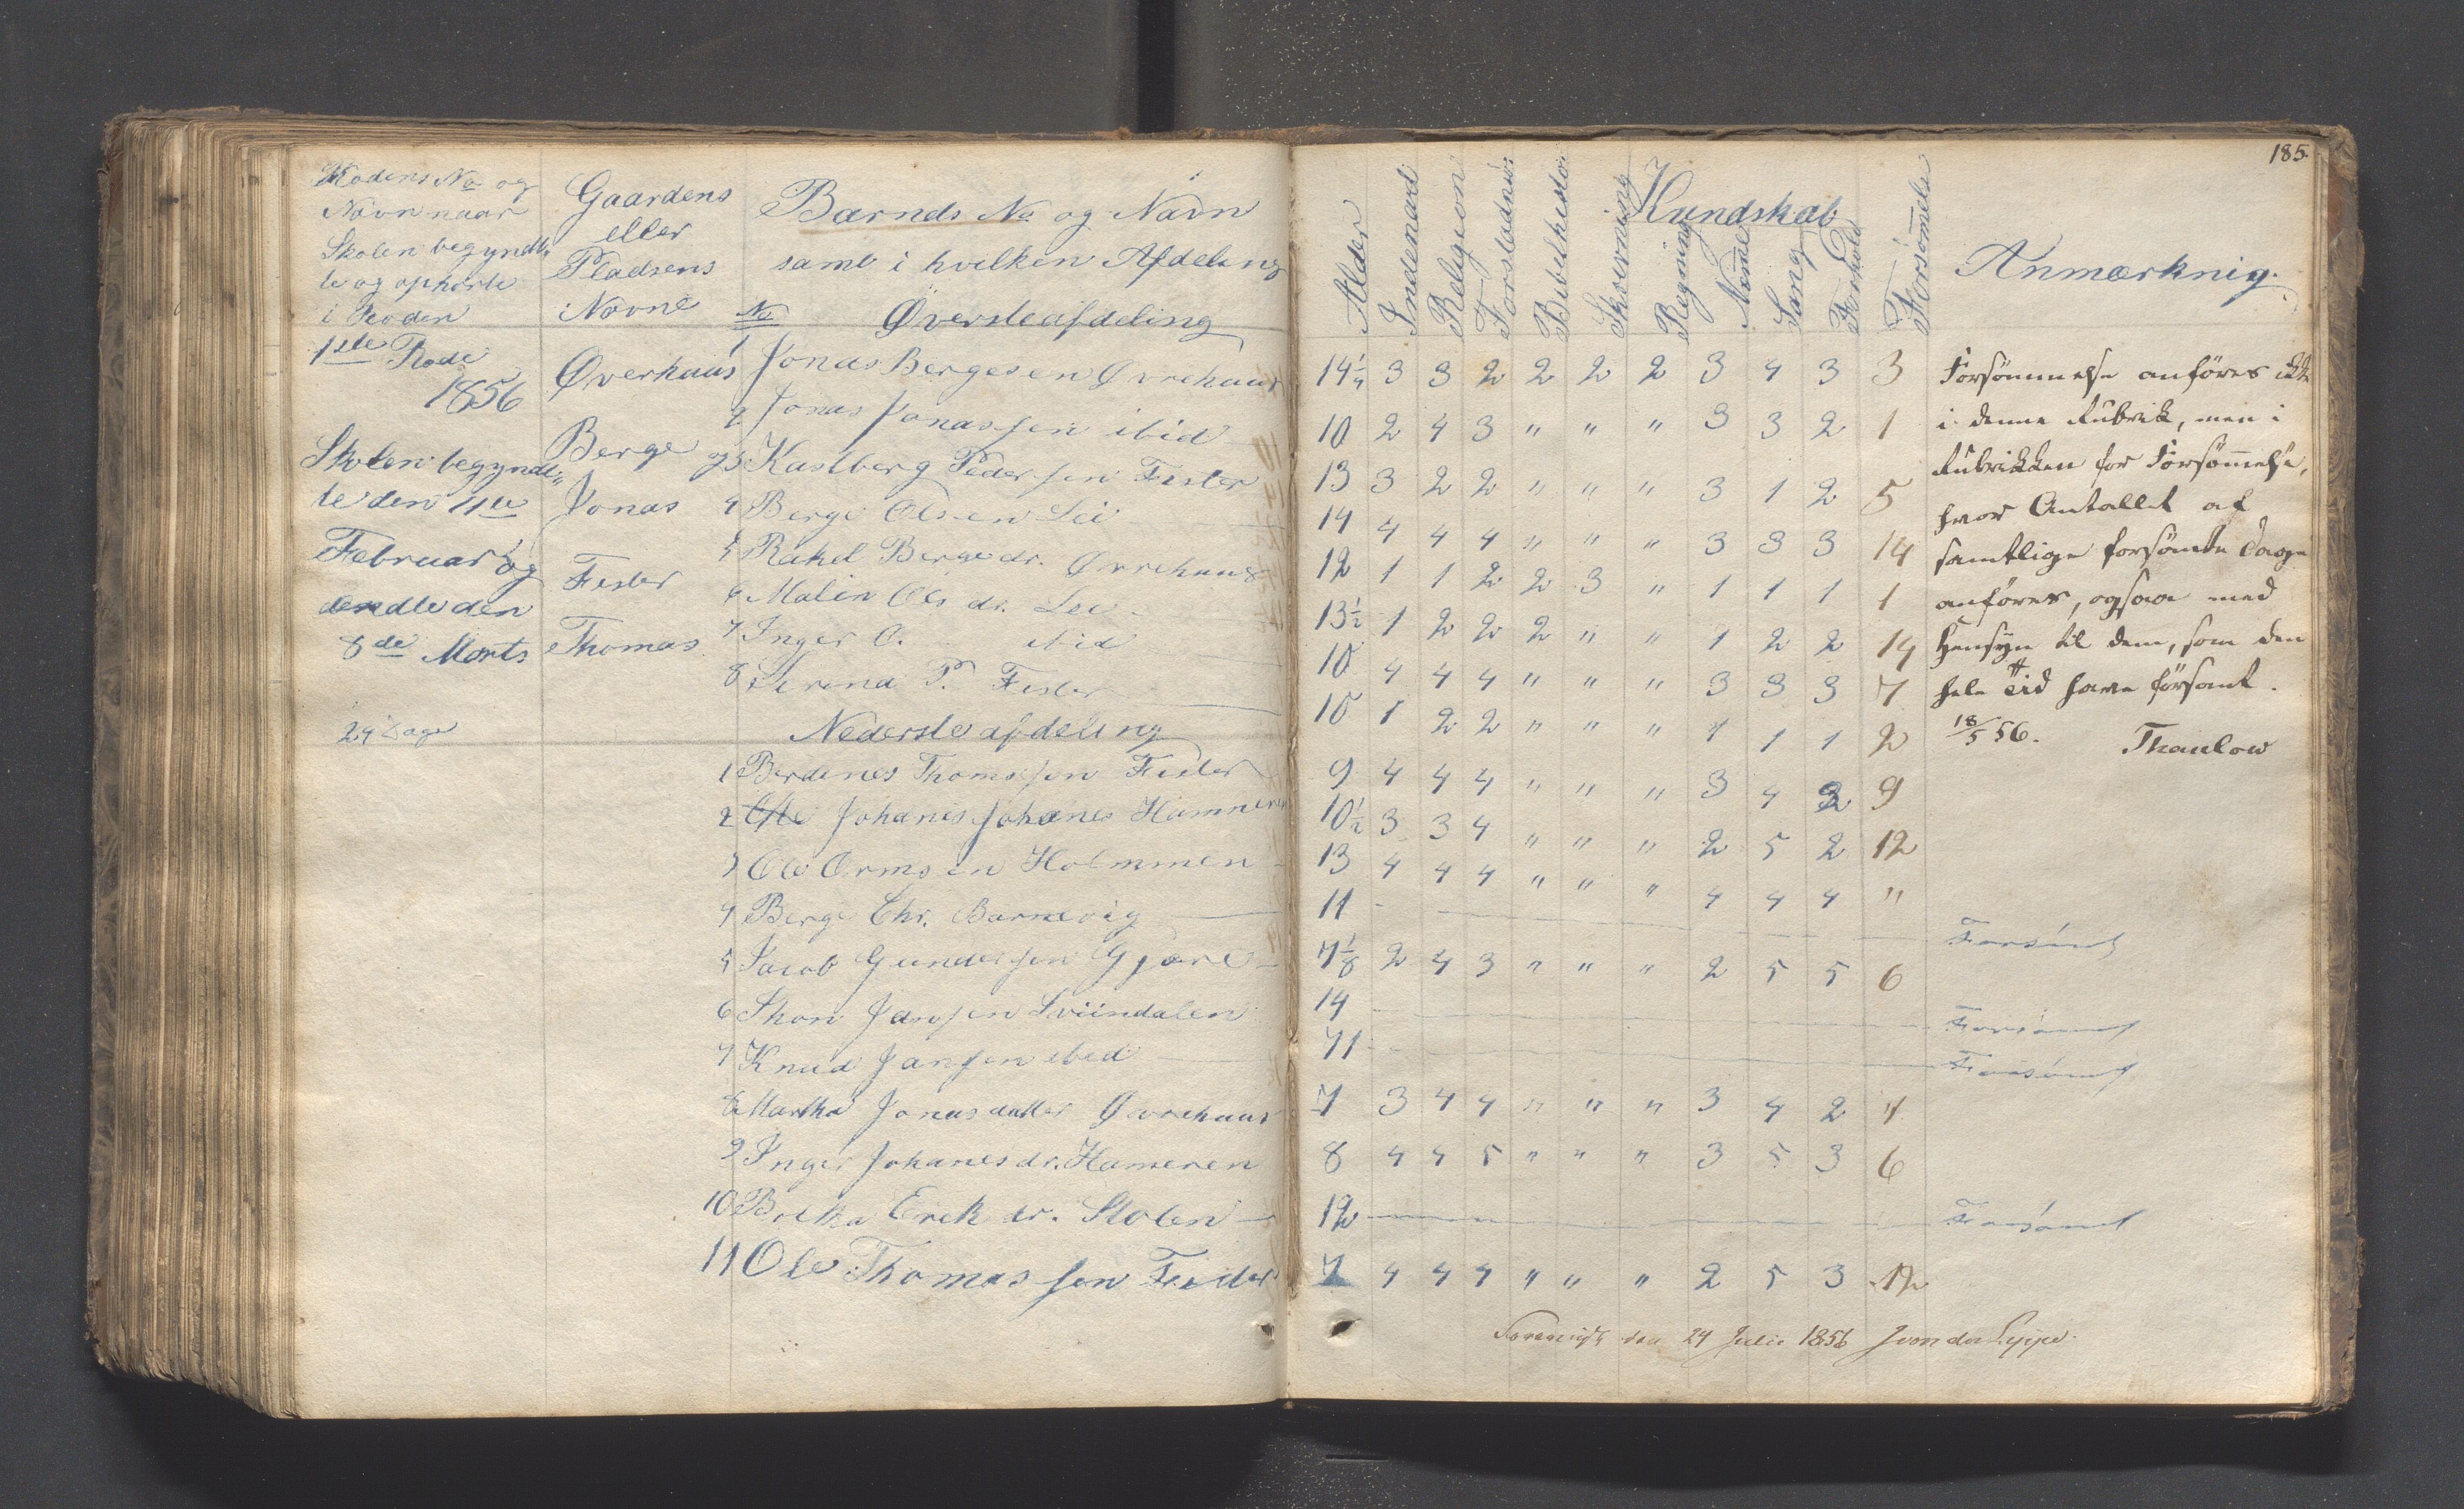 185.
Rodens No og
Navn naar
Skolen begyndt
te og ophørte
i Roden
Gaardens
eller
Pladsens
Navne
Barnds No og Navn
samt i hvilken Afdeling
No Øversteafdeling
Alder
Indenad
Religion
Bibelhistor
Skrivning
Regning
Sang
Forhold
Forsømmelse
Kundskab
Anmærknig.
1ste Rode
1856
Skolen begynd„
te den 4de
Februar og
endte den
8de Marts
24 Dage
Øverhaus
Berge
Jonas
Fister
Thomas
1 Jonas Bergesen Øvrehaus 14 1/4 3 3 2 2 2 2 3 4 3 3
2 Jonas Jonassen ibid 10 2 4 3 " " " 3 3 2 1
3 Kastberg Pedersen Fister 13 3 2 2 " " " 3 1 2 5
4 Berge Olsen Lei 14 4 4 4 " " " 3 3 3 14
5 Rakel Bergedr. Øvrehaus 12 1 1 2 2 3 " 1 1 1 1
6 Malin Ols dr. Lei 13 1/2 1 2 2 2 " " 1 2 2 14
7 Inger O. ibid 10 4 4 4 " " " 3 3 3 7
8 Serina P. Fister 10 1 2 2 " " " 1 1 1 2
Nedersteafdeling
1 Berdines Thomassen Fister 9 4 4 4 " " " 3 4 3 9
2 Johanes Johanes Hammeren 10 1/2 3 3 4 " " " 2 5 2 12
3 Ole Ormsen Holmmen 13 4 4 4 " " " 4 4 4 "
4 Berge Chr. Barkevig 11 Forsømt
5 Jacob Gundersen Gjøre 7 1/8 2 4 3 " " " 2 5 5 6
6 Jansen Sviindalen 14 Forsømt
7 Knud Jansen ibid 11 Forsømt
8 Martha Jonasdatter Øvrehaus 7 3 4 4 " " " 3 4 2 4
9 Inger Johanes dr. Hameren 8 4 4 5 " " " 3 5 3 6
10 Erik dr. Stolen 12 Forsømt
11 Ole Thomassen Fister 7 4 4 4 " " " 2 5 3 12
Forsömmelse anföres ikke
i denne Rubrik, men i
Rubrikken for Forsömmelse,
hvor Antallet af
samtlige forsömte Dage
anföres, ogsaa med
Hensyn til dem, som den
hele Tid have forsömt.
18/5 56. Thaulow
Foreviist den 24 Julii 1856 J von der Lippe.